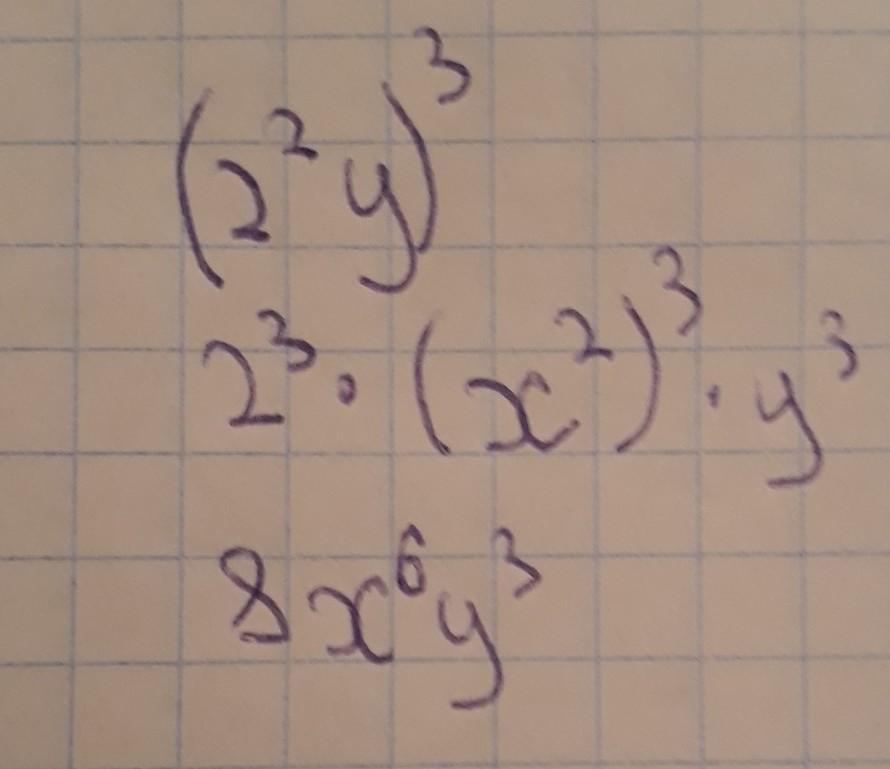 (2²y)³
2³·(x²)³·y³
8x⁶y³